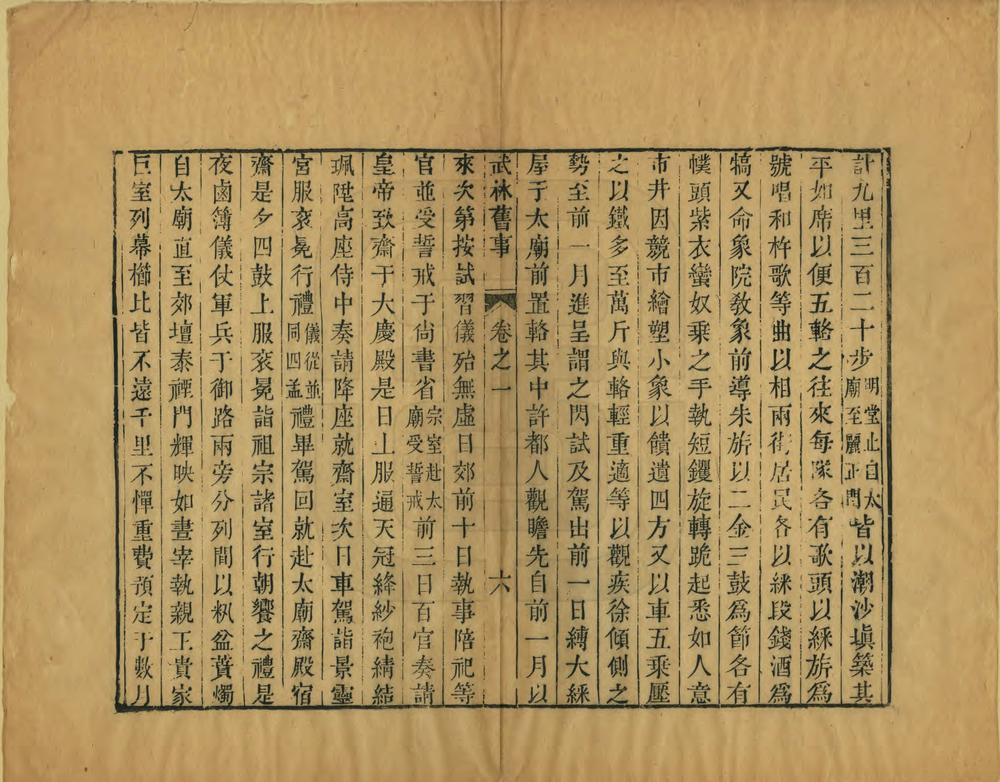 計九里三百二十步明堂止自太廟至麗正門皆以潮沙塡築其
平如席以便五輅之往來每隊各有歌頭以綵旂爲
號唱和杵歌等曲以相兩街居民各以綵段錢酒爲
犒又命象院敎象前導朱旂以二金三鼓爲節各有
幞頭紫衣蠻奴乘之手執短钁旋轉跪起悉如人意
市井因競市繪塑小象以饋遺四方又以車五乘壓
之以鐵多至萬斤與輅輕重適等以觀疾徐傾側之
勢至前一月進呈謂之閃試及駕出前一日縛大綵
屋于太廟前置輅其中許都人觀瞻先自前一月以
武林舊事 卷之一 六
來次第按試習儀殆無虛日郊前十日執事陪祀等
官並受誓戒于尙書省宗室赴太廟受誓戒前三日百官奏請
皇帝致齋于大慶殿是日上服通天冠絳紗袍綪結
珮陞高座侍中奏請降座就齋室次日車駕詣景靈
宮服衮冕行禮儀從並同四孟禮畢駕回就赴太廟齋殿宿
齋是夕四鼓上服衮冕詣祖宗諸室行朝饗之禮是
夜鹵簿儀仗軍兵于御路兩旁分列間以籸盆蕡燭
自太廟直至郊壇泰禋門輝映如晝宰執親王貴家
巨室列幕櫛比皆不遠千里不憚重費預定于數月